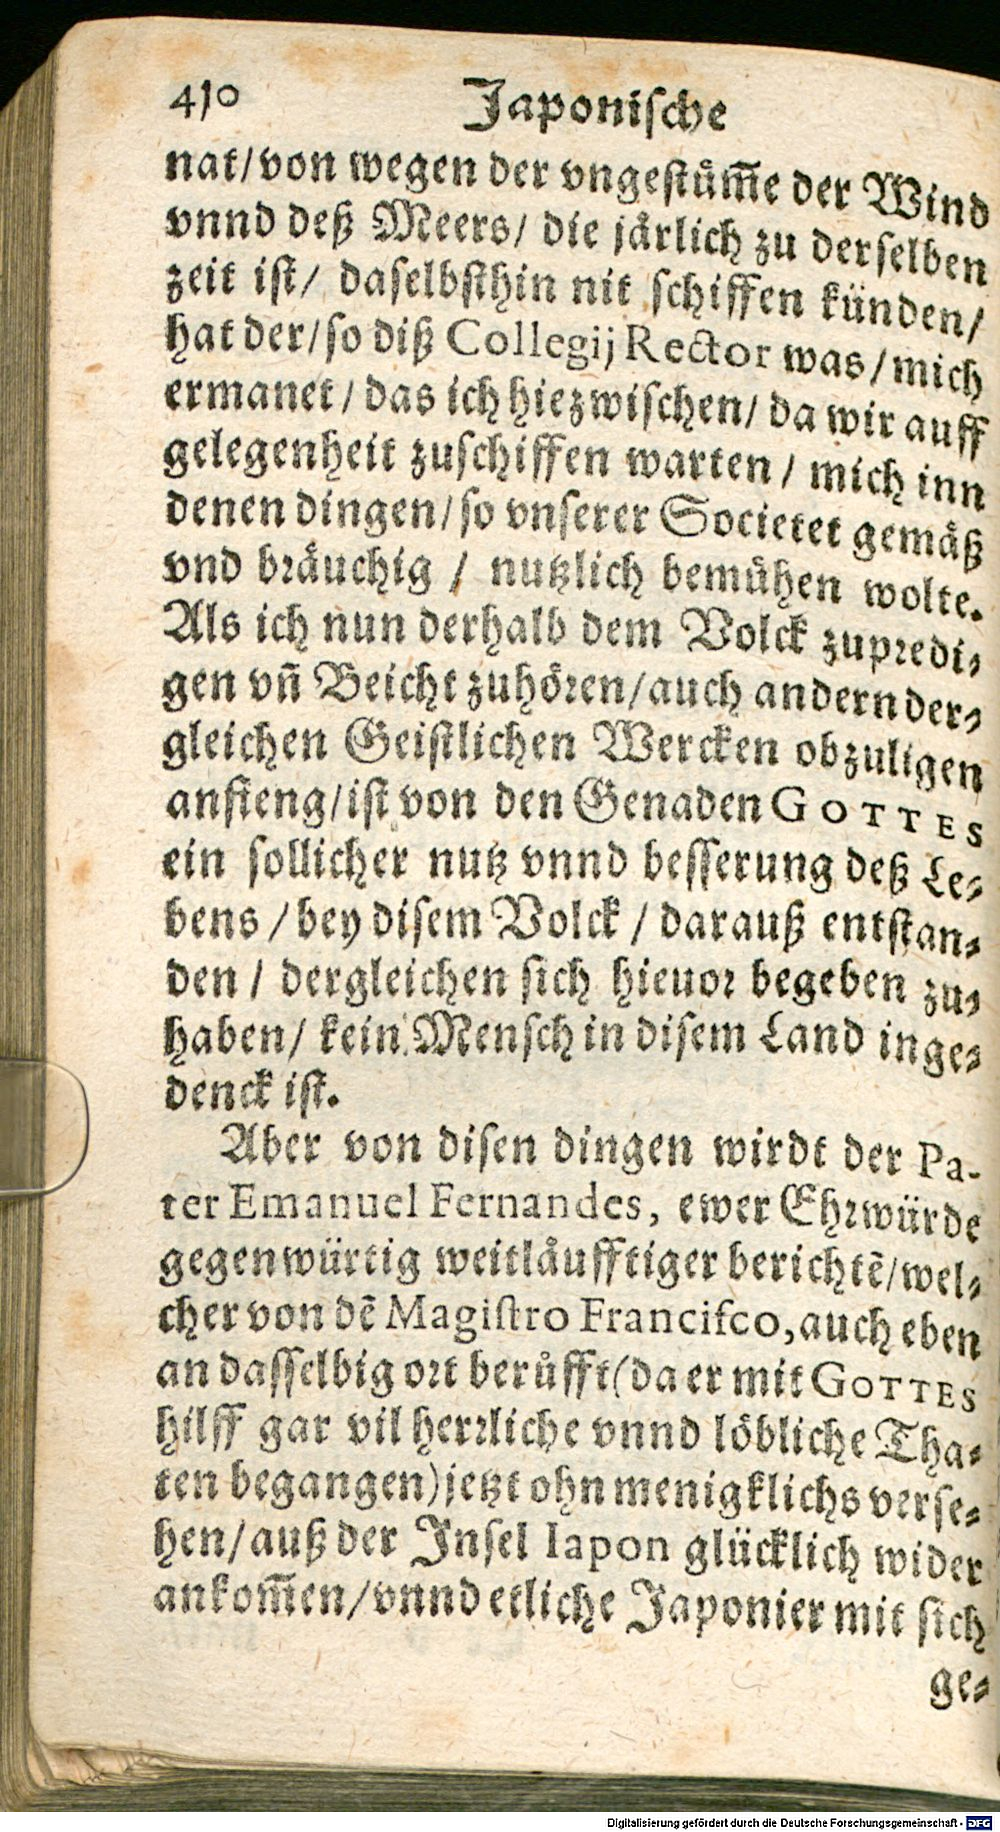 410 Japonische
nat/von wegen der vngestuͤm̃e der Wind
vnnd deß Meers/ die jaͤrlich zu derselben
zeit ist/ daselbsthin nit schiffen künden/
hat der/so diß Collegij Rector was/mich
ermanet/das ich hiezwischen/da wir auff
gelegenheit zuschiffen warten/mich inn
denen dingen/so vnserer Societet gemaͤß
vnd braͤuchig / nutzlich bemuͤhen wolte.
Als ich nun derhalb dem Volck zupredi⸗
gen vñ Beicht zuhoͤren/auch andern der⸗
gleichen Geistlichen Wercken obzuligen
anfieng/ist von den Genaden GOTTES
ein sollicher nutz vnnd besserung deß Le⸗
bens /bey disem Volck / darauß entstan⸗
den / dergleichen sich hieuor begeben zu⸗
haben/ kein Mensch in disem Land inge⸗
denck ist.
Aber von disen dingen wirdt der Pa-
ter Emanuel Fernandes, ewer Ehrwürde
gegenwürtig weitlaͤufftiger berichtẽ/wel⸗
cher von dẽ Magistro Francisco, auch eben
an dasselbig ort beruͤfft(da er mit GOTTES
hilff gar vil herrliche vnnd löbliche Tha⸗
ten begangen)jetzt ohn menigklichs verse⸗
hen/auß der Insel Iapon glücklich wider
ankom̃en/vnnd etliche Japonier mit sich
ge⸗
Digitalisierung gefördert durch die Deutsche Forschungsgemeinschaft - DFG